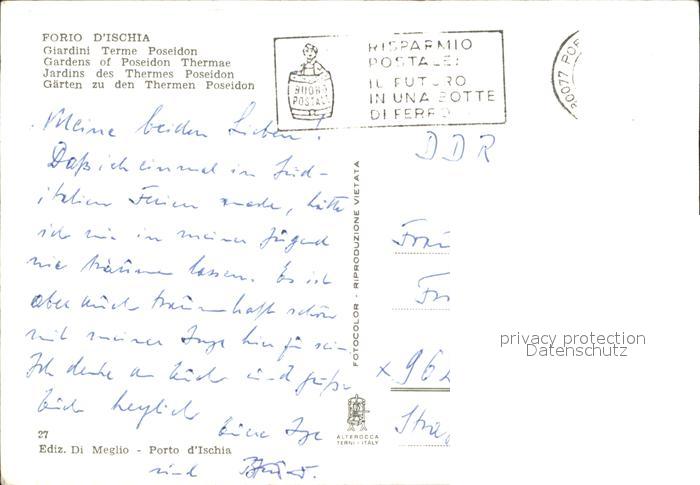 FORIO D'ISCHIA
Giardini Terme Poseidon
Gardens of Poseidon Thermae
Jardins des Thermes Poseidon
Gärten zu den Thermen Poseidon
BUONO
POSTALE
RISPARMIO
POSTALE:
IL FUTURO
IN UNA BOTTE
DI FERRO
80077 POR
Meine beiden Lieben!
Daß ich einmal in Süd-
italien Ferien mache, hätte
ich mir in meiner Jugend
nie träumen lassen. Es ist
aber auch traumhaft schön
mit meiner Inge hier zu sein.
Ich denke an Euch und grüße
Euch herzlich
Eure Inge
und
DDR
Frau
Fri
x 962
Stra
FOTOCOLOR - RIPRODUZIONE VIETATA
ALTEROCCA
TERNI - ITALY
27
Ediz. Di Meglio - Porto d'Ischia
privacy protection
Datenschutz